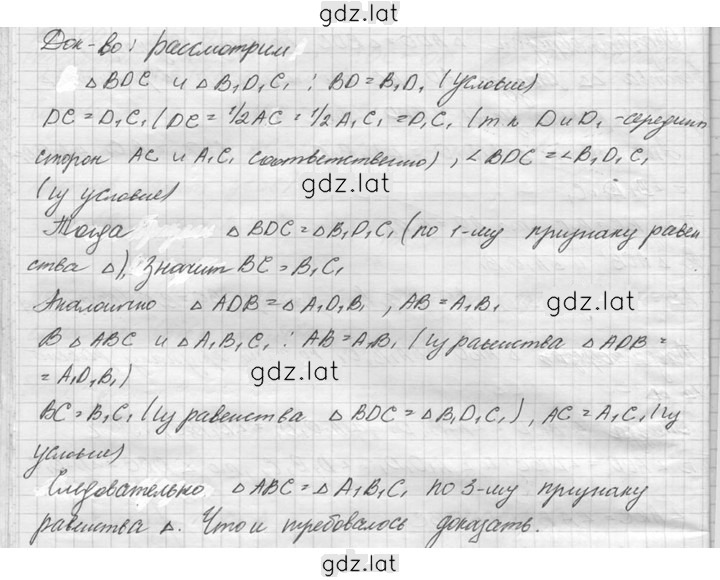 gdz.lat
Док-во: рассмотрим
△BDC и △B₁D₁C₁ : BD = B₁D₁ (условие)
DC = D₁C₁ (DC = 1/2 AC = 1/2 A₁C₁ = D₁C₁ (т.к D и D₁ - середины
сторон AC и A₁C₁ соответственно), ∠BDC = ∠B₁D₁C₁
gdz.lat
(из условия)
Тогда △BDC = △B₁D₁C₁ (по 1-му признаку равен
gdz.lat
ства △), значит BC = B₁C₁
Аналогично △ADB = △A₁D₁B₁ , AB = A₁B₁
gdz.lat
В △ABC и △A₁B₁C₁ : AB = A₁B₁ (из равенства △ADB =
= A₁D₁B₁)
gdz.lat
BC = B₁C₁ (из равенства △BDC = △B₁D₁C₁), AC = A₁C₁ (из
условия)
gdz.lat
Следовательно △ABC = △A₁B₁C₁ по 3-му признаку
равенства △. Что и требовалось доказать.
gdz.lat